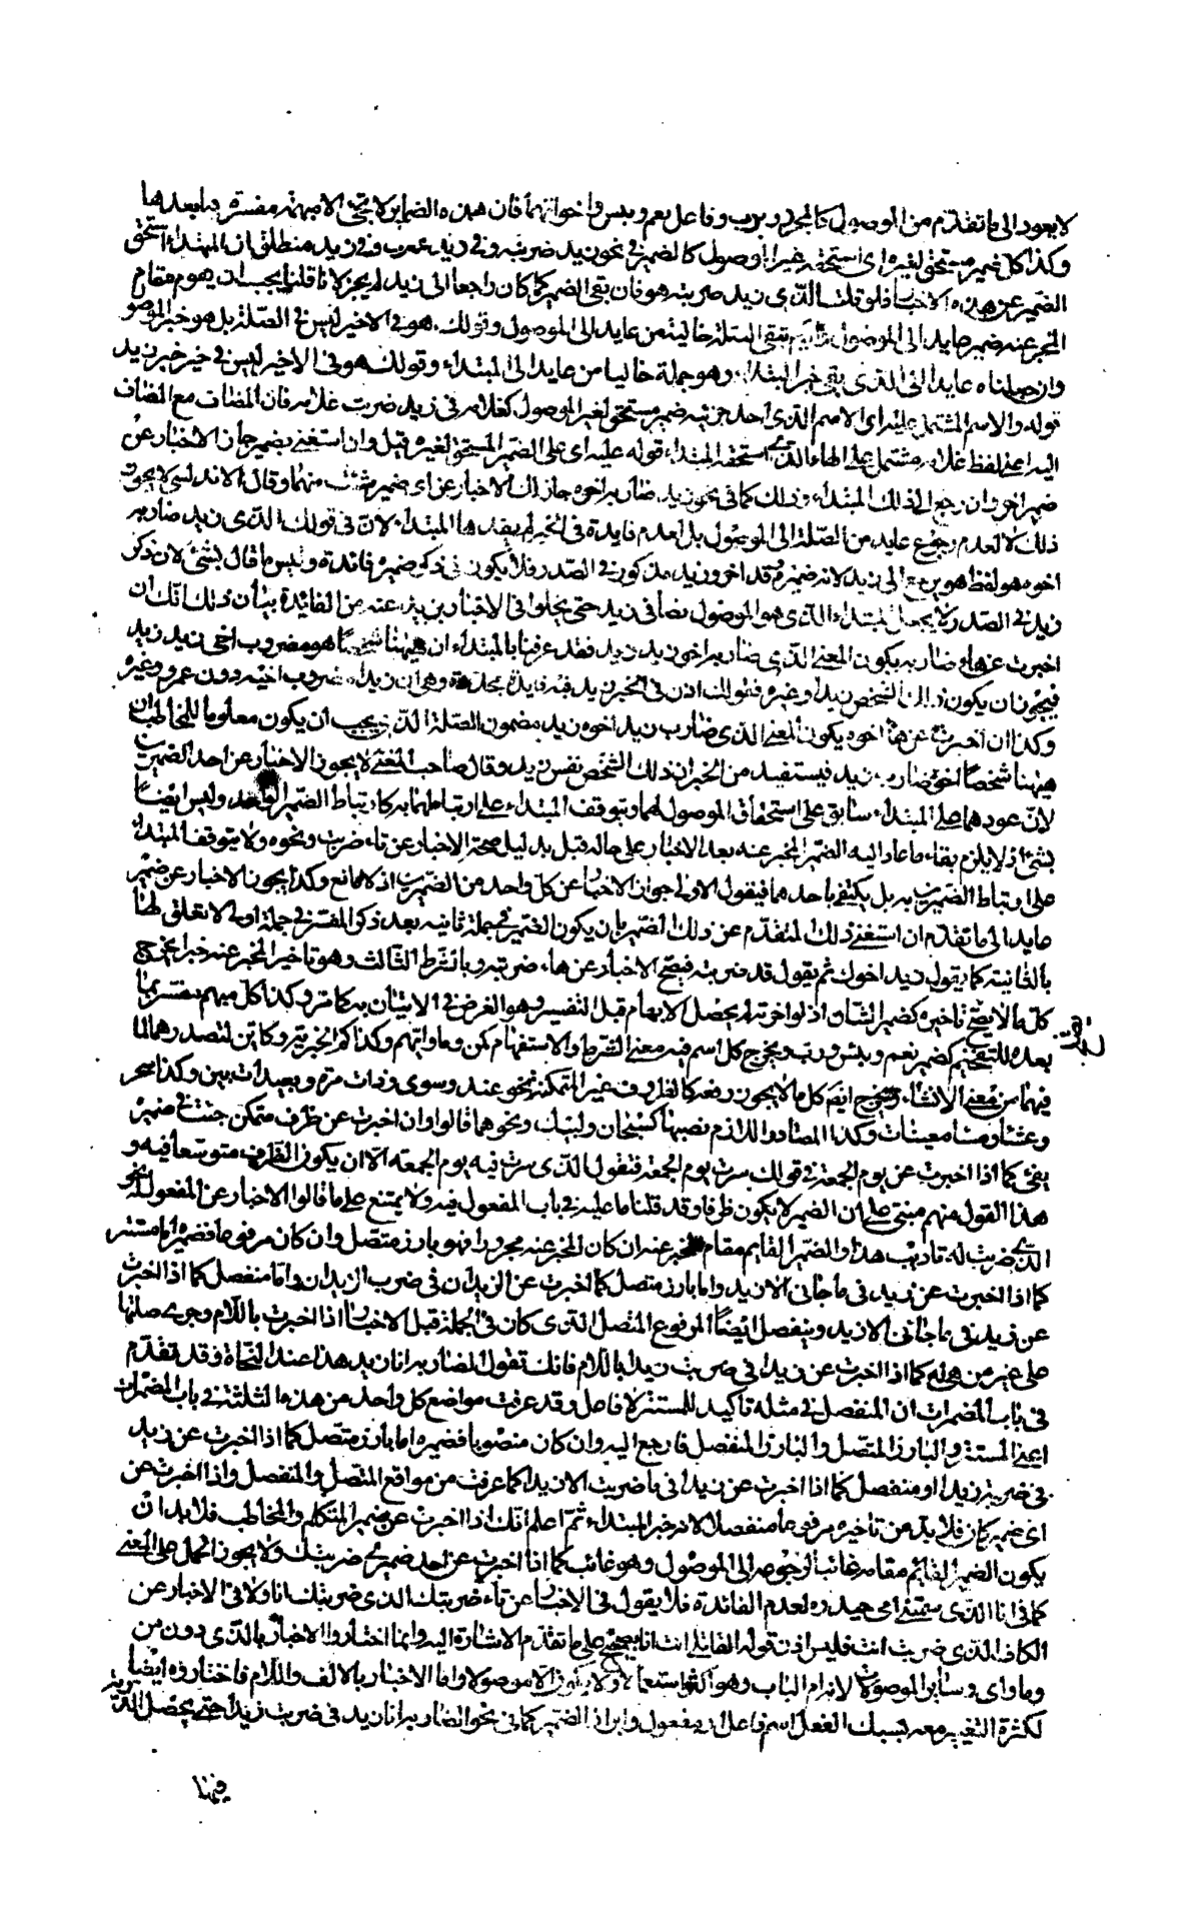 لا يعود الى ما تقدم من الموصول كالمجرور برب وفاعل نعم وبئس واخواتهما فان هذه الضماير لا تجئ الا مبهمة مفسرة بما بعدها
وكذا كل ضمير مستحق لغيره اى استحقه غير الموصول كالضمير فى نحو زيد ضربته وفى زيد ضرب وفى زيد منطلق ان المبتداء استحق
الضمير عن هذه الاخبار فلو قلت الذى زيد ضربته هو فان بقى الضمير كما كان راجعا الى زيد لم يجز لانا قلنا يجب ان يقوم مقام
المخبر عنه ضمير عايد الى الموصول تبقى الصلة خالية من عايد الى الموصول وقولك هو فى الاخير ليس فى الصلة بل هو خبر الموصو
وان جعلناه عايدا الى الذى بقى خبر المبتداء وهو جملة خاليا من عايد الى المبتداء وقولك هو فى الاخير ليس فى خبر زيد
قوله والاسم المشتمل عليه اى الاسم الذى احد جزئيه ضمير مستحق لغير الموصول كغلامه فى زيد ضربت غلامه فان المضاف مع المضاف
اليه اعنى لفظ غلامه مشتمل على الهاء الذى استحقه المبتداء قوله عليه اى على الضمير المستحق لغيره قيل وان استغنى بضمير جاز الاخبار عن
ضمير اخر وان رجع الى ذلك المبتداء وذلك كما فى نحو زيد ضاربه اخوه جاز لك الاخبار عن اى ضمير شئت منهما وقال الاندلسى لا يجوز
ذلك لا لعدم رجوع عايد من الصلة الى الموصول بل لعدم فايدة فى الخبر لم يفدها المبتداء لان فى قولك الذى زيد ضاربه
اخوه هو لفظ هو يرجع الى زيد لانه ضميره وقد اخر وزيد مذكور فى الصدر فلا يكون فى ذكر ضميره فائدة وليس ما قال بشئ لان ذكر
زيد فى الصدر لا يجعل المبتداء الذى هو الموصول نصا فى زيد حتى يخلوا فى الاخبار بزيد عنه من الفائدة بيان ذلك انك ان
اخبرت عن هاء ضاربه يكون المعنى الذى ضاربه اخو زيد زيد فقد عرفنا بالمبتداء ان ههنا شخصا هو مضروب اخى زيد زيد
فيجوز ان يكون ذلك الشخص زيدا وغيره فقولك اذن فى الخبر زيد فيه فايدة مجددة وهى ان زيدا مضروب اخيه دون عمرو وغيره
وكذا ان اخبرت عن هاء اخوه يكون المعنى الذى ضارب زيد اخوه زيد مضمون الصلة الذى يجب ان يكون معلوما للمخاطب ان
ههنا شخصا اخوه ضارب زيد فيستفيد من الخبر ان ذلك الشخص نفس زيد وقال صاحب المغنى لا يجوز الاخبار عن احد الضميرين
لان عودهما على المبتداء سابق على استحقاق الموصول لهما ويتوقف المبتداء على ارتباطهما به كارتباط الضمير الواحد وليس ايضا
بشئ اذ لا يلزم بقاء ما عاد اليه الضمير المخبر عنه بعد الاخبار على حاله قبل بدليل صحة الاخبار عن تاء ضربت ونحوه ولا يتوقف المبتداء
على ارتباط الضميرين به بل يكتفى باحدهما فيقول الاولى جواز الاخبار عن كل واحد من الضميرين اذ لا مانع وكذا يجوز الاخبار عن ضمير
عايد الى ما تقدم ان استغنى ذلك المتقدم عن ذلك الضمير بان يكون الضمير فى جملة ثانيه بعد ذكر المفسر فى جملة اولى لا تعلق لها
بالثانية كما يقول زيد اخوك ثم يقول قد ضربته فيصح الاخبار عن هاء ضربته وبالشرط الثالث وهو تاخير المخبر عنه خبرا يخرج
كل ما لا يصح تاخيره كضمير الشان اذ لو اخر لم يحصل الابهام قبل التفسير وهو الغرض فى الاتيان به كما مر وكذا كل مبهم يفسر بما
بعده للتفخيم كضمير نعم وبئس ورب ويخرج كل اسم فيه معنى الشرط او الاستفهام كمن وما وايهم وكذا كم الخبرية وكاين لتصدرهما لما
فيهما من معنى الانشاء ويخرج ايضا كل ما لا يجوز رفعه كالظروف غير المتمكنة نحو عند وسوى وذات مرة وبعيدات بين وكذا سحر
وعشاء ومساء معينات وكذا المصادر اللازم نصبها كسبحان ولبيك ونحوهما قالوا وان اخبرت عن ظرف متمكن جئت فى ضميره
بفى كما اذا اخبرت عن يوم الجمعة فى قولك سرت يوم الجمعة فتقول الذى سرت فيه يوم الجمعة الا ان يكون الظرف متوسعا فيه و
هذا القول منهم مبنى على ان الضمير لا يكون ظرفا وقد قلنا ما عليه فى باب المفعول فيه ولا يمتنع على ما قالوا الاخبار عن المفعول له نحو
الذى ضربت له تاديب هذا والضمير القايم مقام المخبر عنه ان كان المخبر عنه مجرورا فهو بارز متصل وان كان مرفوعا فضميره اما مستتر
كما اذا اخبرت عن زيد فى ما جاءنى الا زيد واما بارز متصل كما اخبرت عن الزيدان فى ضرب الزيدان واما منفصل كما اذا اخبرت
عن زيد فى ما جاءنى الا زيد وينفصل ايضا المرفوع المتصل الذى كان فى الجملة قبل الاخبار اذا اخبرت باللام وجرى صلتها
على غير من هى له كما اذا اخبرت عن زيدا فى ضربت زيدا باللام فانك تقول الضاربه انا زيد هذا عند النحاة وقد تقدم
فى باب المضمرات ان المنفصل فى مثله تاكيد للمستتر لا فاعل وقد عرفت مواضع كل واحد من هذه الثلثة فى باب الضمرات
اعنى المستتر والبارز المتصل والبارز المنفصل فارجع اليه وان كان منصوبا فضميره اما بارز متصل كما اذا اخبرت عن زيد
فى ضربت زيدا او منفصل كما اذا اخبرت عن زيدا فى ما ضربت الا زيدا كما عرفت من مواقع المتصل والمنفصل واذا اخبرت عن
اى ضمير كان فلا بد من تاخيره مرفوعا منفصلا لانه خبر المبتداء ثم اعلم انك اذا اخبرت عن ضمير المتكلم والمخاطب فلا بد ان
يكون الضمير القايم مقامه غائبا لرجوعه الى الموصول وهو غائب كما اذا اخبرت عن احد ضميرى ضربتك ولا يجوز الحمل على المعنى
كما فى انا الذى سمتنى امى حيدره لعدم الفائدة فلا يقول فى الاخبار عن تاء ضربتك الذى ضربتك انا ولا فى الاخبار عن
الكاف الذى ضربت انت فليس اذن قوله القائل انت انا بصحيح على ما تقدم الاشارة اليه وانما اختاروا الاخبار بالذى دون من
وما واى وسائر الموصولات لانه ام الباب وهو اكثر استعمالا ولا يكون الا موصولا واما الاخبار بالالف واللام فاختاروه ايضا
لكثرة التغيير معه بسبك الفعل اسم فاعل او مفعول وابراز الضمير كما فى نحو الضاربه انا زيد فى ضربت زيدا حتى يحصل الدربة
فيما